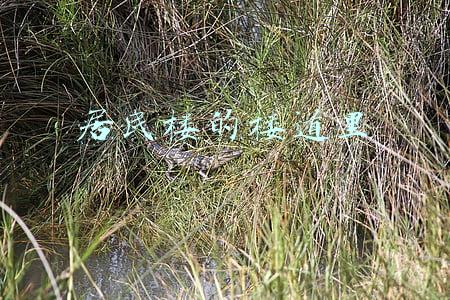 居民楼的楼道里